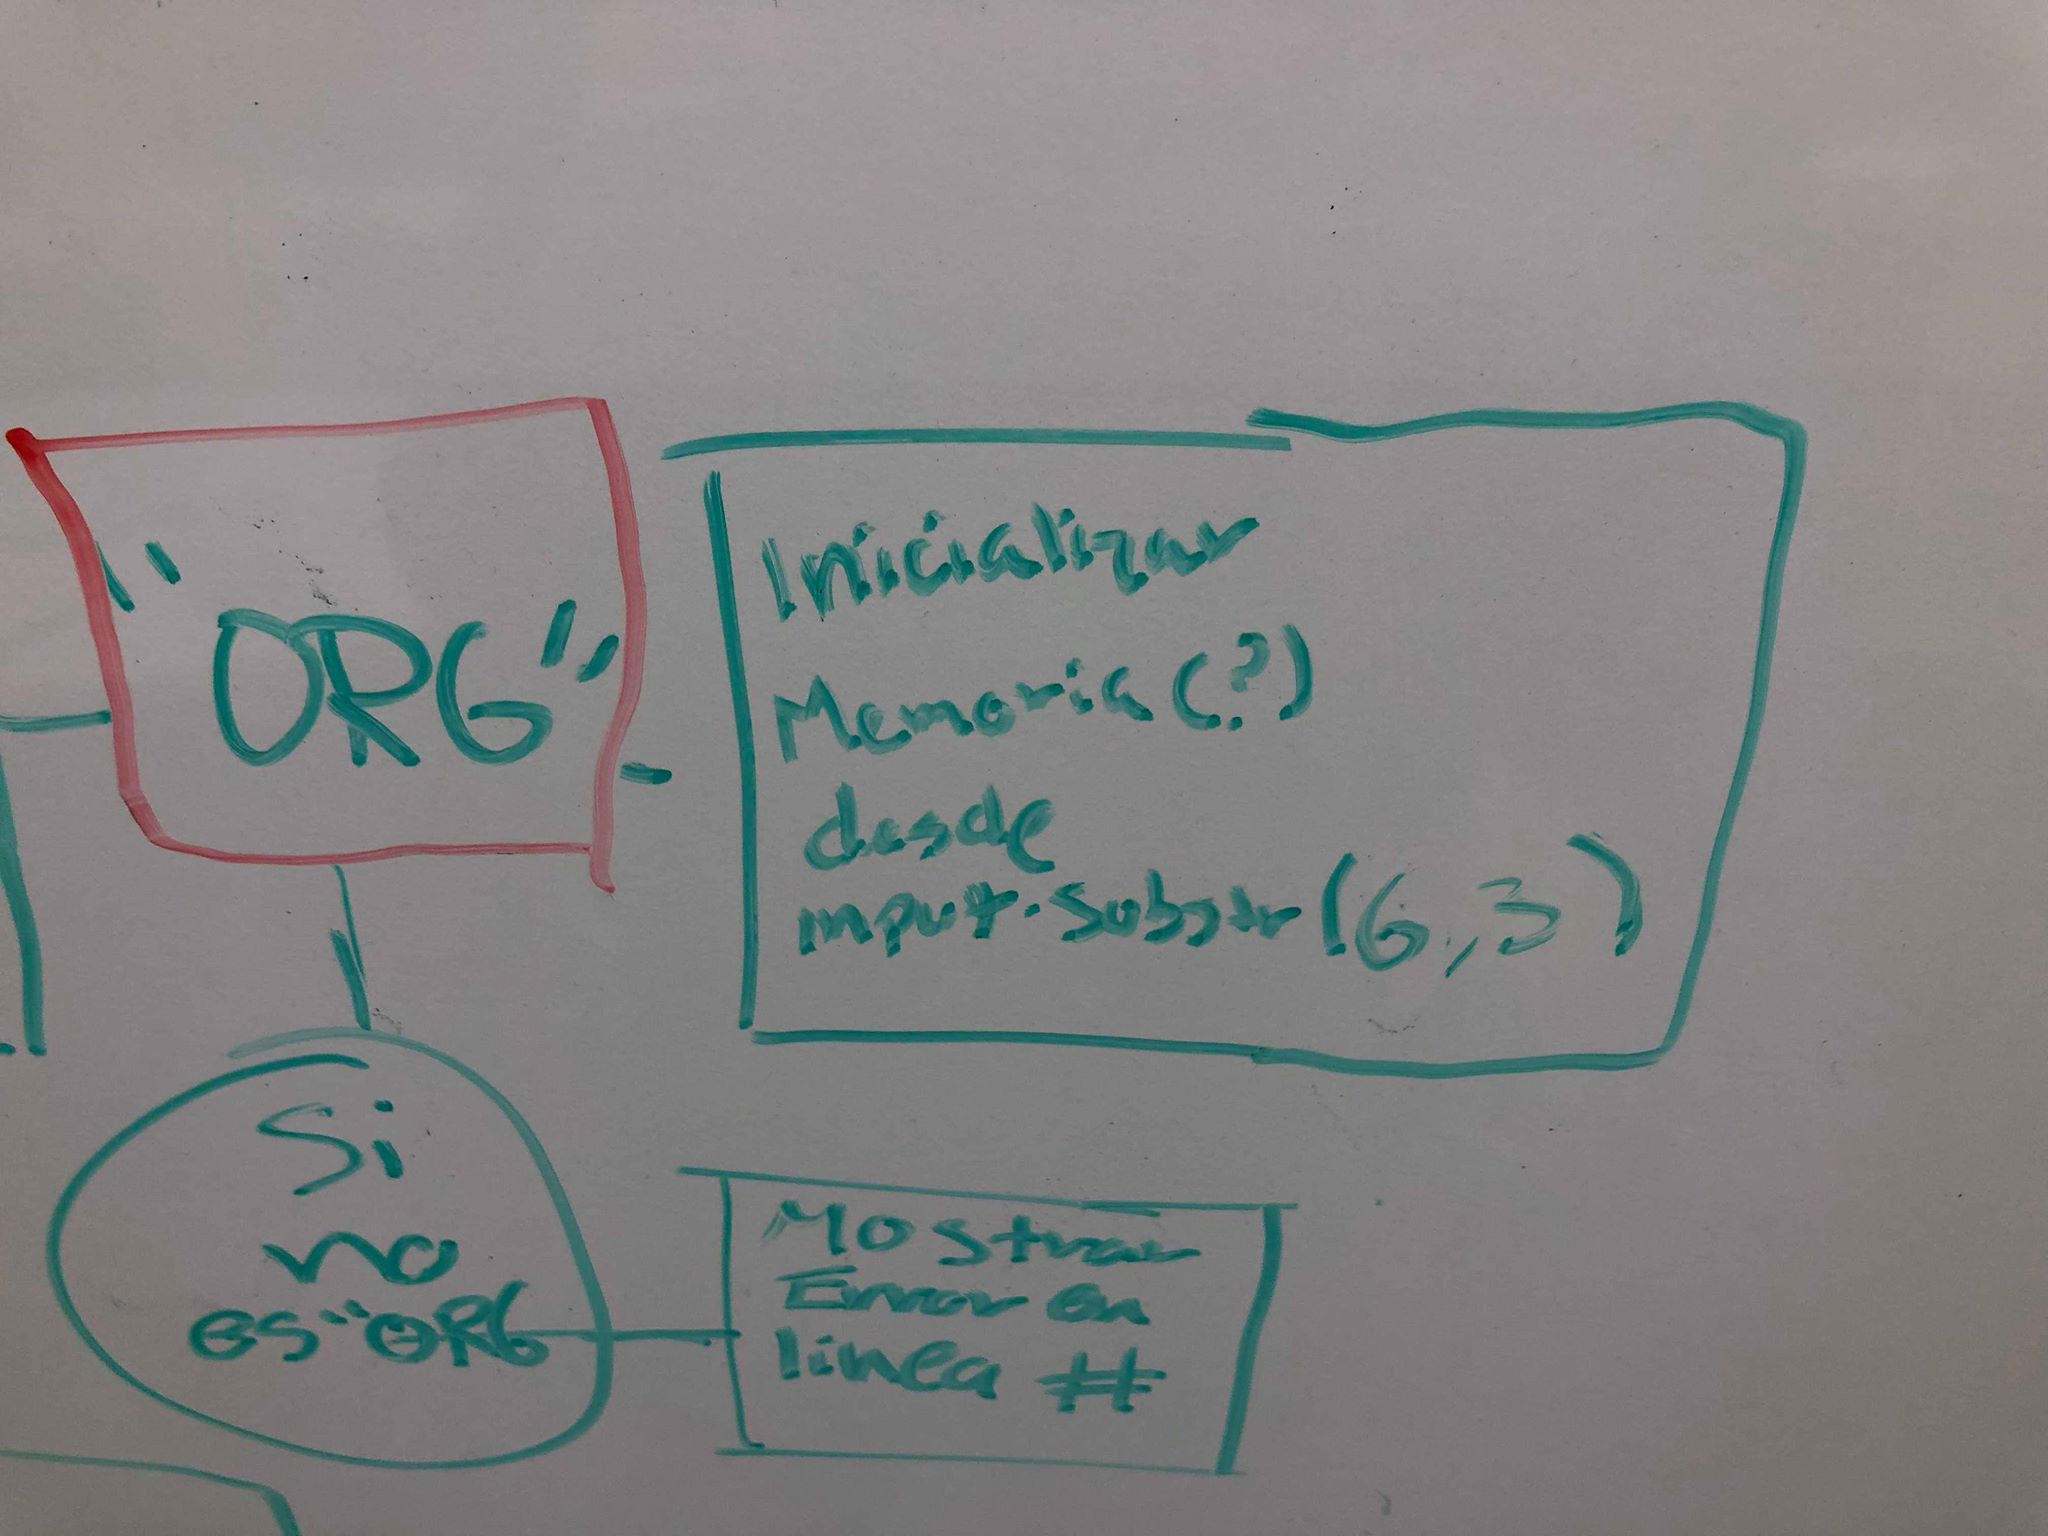 "ORG"
Inicializar
Memoria (?)
desde
input.substr(6,3)
Si
no
es "ORG
Mostrar
Error en
linea #